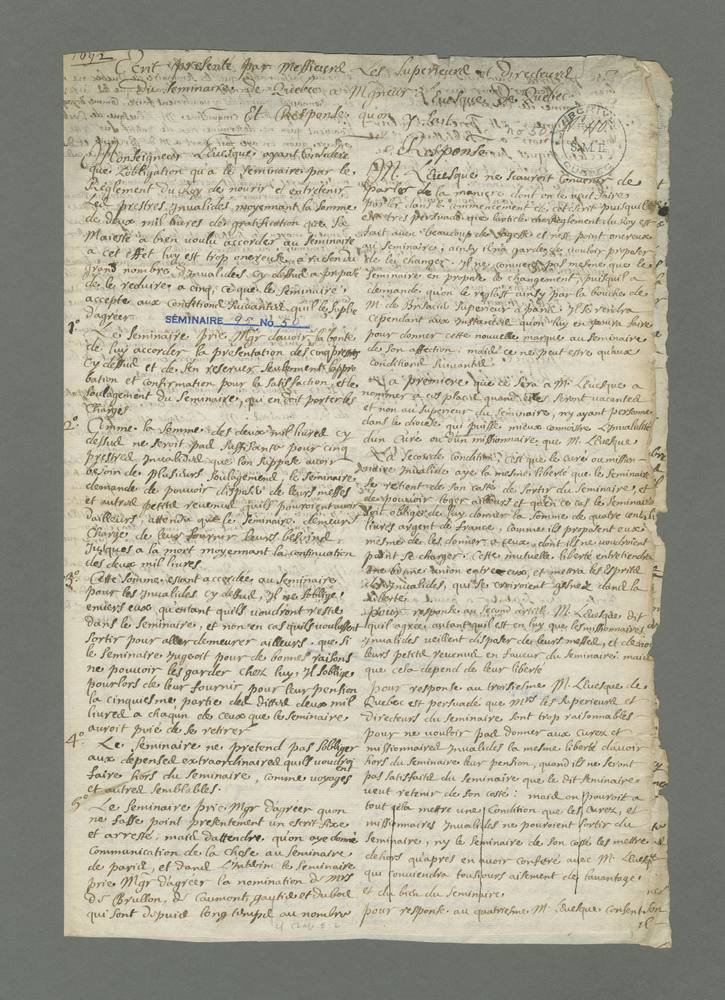 1692
Ecrit presenté par Messieurs Les Superieurs et Directeurs
du Seminaire de Quebec a Mgneur L'Evesque De Quebec
Et Response qu'on y fait
No 50
ARCHIVES
No 110
S.M.E.
QUEBEC
Monseigneur L'Evesque ayant considere
que l'obligation qu'a le Seminaire par le
Reglement du Roy de nourir et entretenir
Les prestres Invalides moyennant la somme
de deux mil livres de gratification que Sa
Majesté a bien voulu accorder au Seminaire
a cet effet luy est trop onereuse a raison du
grand nombre d'Invalides cy dessus a proposé
de le reduire a cinq, ce que le Seminaire
accepte aux conditions suivantes qu'il le suplie
d'agreer
SÉMINAIRE 95 No 50
1o Le Seminaire prie Mgr d'avoir la bonté
de luy accorder la presentation des cinq prestres
cy dessus et de s'en reserver seulement l'appro
bation et confirmation pour la satisfaction et le
soulagement du Seminaire, qui en doit porter les
charges
2o Comme la somme des deux mil livres cy
dessus ne seroit pas suffisante pour cinq
prestres Invalides que l'on suppose avoir
besoin de plusieurs soulagemens, le Seminaire
demande de pouvoir disposer de leurs messes
et autres petits revenus qu'ils pouroient avoir
d'ailleurs, attendu que le Seminaire demeure
chargé de leur fournir leurs besoins
jusques a la mort moyennant la continuation
des deux mil livres
3o Cette somme estant accordée au Seminaire
pour les Invalides cy dessus, Il ne s'oblige
envers eux qu'entant qu'ils voudront rester
dans le Seminaire, et non en cas qu'ils voulussent
sortir pour aller demeurer ailleurs, que si
le Seminaire jugeoit pour de bonnes raisons
ne pouvoir les garder chez luy, Il s'oblige
pour lors de leur fournir pour leur pension
la cinquiesme partie des dittes deux mil
livres a chaqun de ceux que le Seminaire
auroit prié de se retirer
4o Le Seminaire ne pretend pas s'obliger
aux depenses extraordinaires qu'ils voudroient
faire hors du Seminaire, comme voyages
et autres semblables
5o Le Seminaire prie Mgr d'agreer qu'on
ne fasse point presentement un escrit fixe
et arresté, mais d'attendre qu'on aye donné
communication de la chose au Seminaire
de paris, et dans l'Interim le Seminaire
prie Mgr d'agreer la nomination de Mrs
de Brullon, de Caumont, gautier et dubos
qui sont depuis longtemps au nombre
Response
M. L'Evesque ne scauroit convenir de
parler de la maniere dont on le veut faire
parler dans le commencement de cet escrit puisqu'il
est tres persuadé que l'article du Reglement du Roy est
fait avec beaucoup de sagesse et n'est point onereux
au Seminaire; ainsy il n'a garde de vouloir proposer
de le changer. Il ne convient pas mesme que le
Seminaire en propose le changement, puisqu'il a
demandé qu'on le reglast ainsy par la bouche de
M. de Brisacier Superieur a paris. Il se rendra
cependant aux Instances qu'on luy en poura faire
pour donner cette nouvelle marque au Seminaire
de son affection, mais ce ne peut estre qu'aux
conditions suivantes
La premiere que ce sera a M. L'Evesque a
nommer a ces places quand elles seront vacantes
et non au superieur du Seminaire, n'y ayant personne
dans le diocese qui puisse mieux connoistre l'Invalidité
d'un Curé ou d'un missionnaire que M. L'Evesque
La seconde condition c'est que le curé ou mission-
naire Invalide aye la mesme liberté que le Seminaire
se retient de son costé de sortir du Seminaire, et
de pouvoir loger ailleurs et qu'en ce cas le Seminaire
soit obligé de luy donner la somme de quatre cents
livres argent de France, comme ils proposent eux
mesme de les donner a ceux, dont ils ne voudroient
point se charger. Cette mutuelle liberté entretiendra
une bonne union entre eux, et mettra les Esprits
des Invalides, qui se croiroient gesnés dans la
liberté
Pour response au second article M. L'Evesque dit
qu'il agrée autant qu'il est en luy que les missionnaires
Invalides veillent disposer de leurs messes, et de
leurs petits revenus en faveur du Seminaire: mais
que cela depend de leur liberté
pour response au troisiesme M. L'Evesque de
Quebec est persuadé que Mrs les Superieurs et
Directeurs du Seminaire sont trop raisonnables
pour ne vouloir pas donner aux Curez et
missionnaires Invalides la mesme liberté d'avoir
hors du Seminaire leur pension, quand ils ne seront
pas satisfaits du Seminaire que le dit Seminaire
veut retenir de son costé: mais on pouroit a
tout cela mettre une Condition que les Curez, et
missionnaires Invalides ne pouroient sortir du
Seminaire, ny le Seminaire de son costé les mettre
dehors qu'apres en avoir conferé avec M. L'Evesque
qui conviendra tousjours aisement de l'avantage
et du bien du Seminaire
pour response au quatriesme M. L'Evesque consent